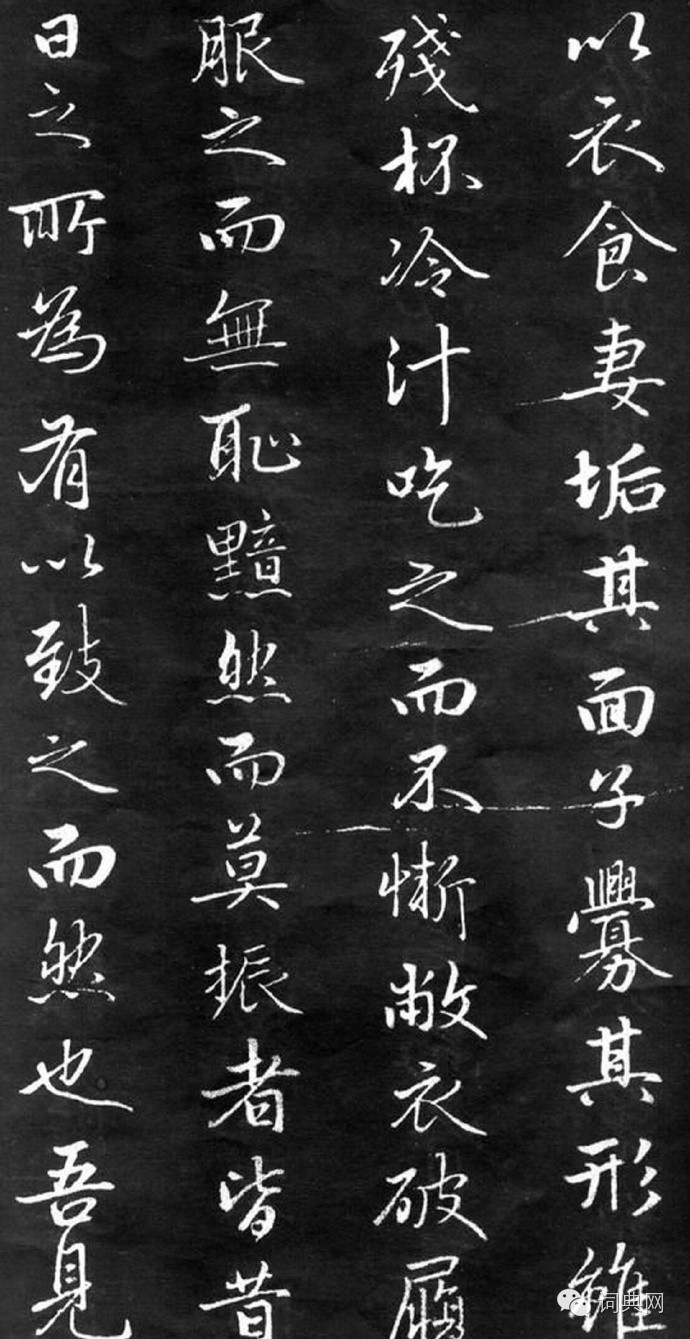 以衣食妻垢其面子釁其形雖
殘杯冷汁吃之而不慚敝衣破屩
服之而無恥黯然而莫振者皆昔
日之所為有以致之而然也吾見
词典网